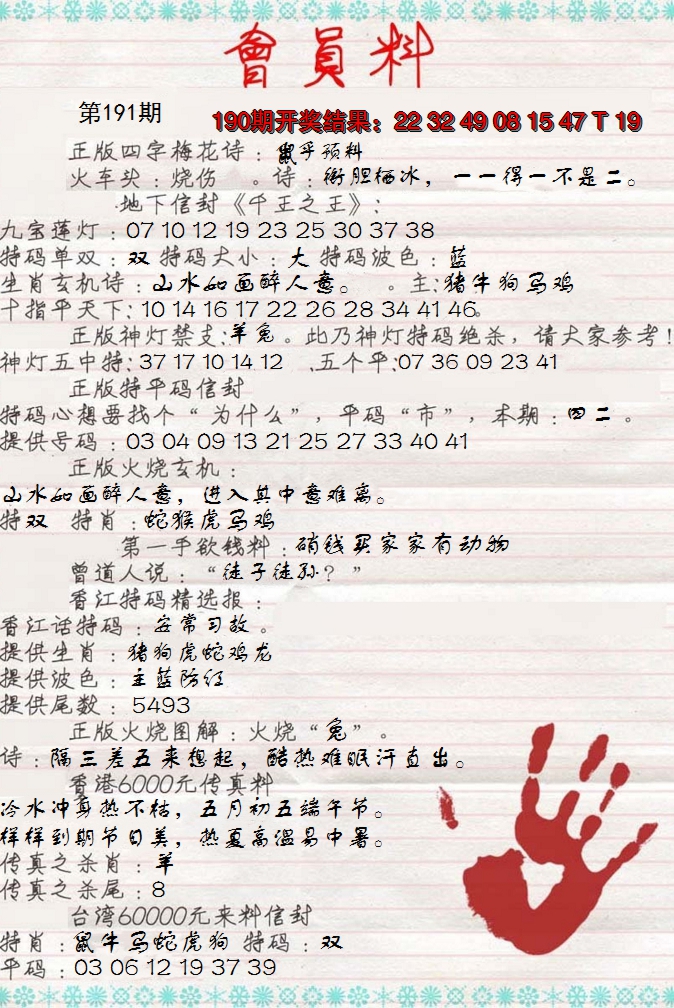 會員料
第191期
190期开奖结果：22 32 49 08 15 47 T 19
正版四字梅花诗：鼠乎预料
火车头：烧伤 。诗：衔胆栖冰，一一得一不是二。
地下信封《千王之王》：
九宝莲灯：07 10 12 19 23 25 30 37 38
特码单双：双 特码大小：大 特码波色：蓝
生肖玄机诗：山水如画醉人意。 。主:猪牛狗马鸡
十指平天下: 10 14 16 17 22 26 28 34 41 46。
正版神灯禁支:羊兔。此乃神灯特码绝杀，请大家参考!
神灯五中特: 37 17 10 14 12 .五个平:07 36 09 23 41
正版特平码信封
特码心想要找个“为什么”，平码“市”，本期：四二。
提供号码：03 04 09 13 21 25 27 33 40 41
正版火烧玄机：
山水如画醉人意，进入其中意难离。
特双 特肖：蛇猴虎马鸡
第一手欲钱料：硝钱买家家有动物
曾道人说：“徒子徒孙？”
香江特码精选报：
香江话特码：安常习故。
提供生肖：猪狗虎蛇鸡龙
提供波色：主蓝防红
提供尾数：5493
正版火烧图解：火烧“兔”。
诗：隔三差五来想起，酷热难眠汗直出。
香港6000元传真料
冷水冲身热不枯，五月初五端午节。
样样到期节日美，热夏高温易中暑。
传真之杀肖：羊
传真之杀尾：8
台湾60000元来料信封
特肖：鼠牛马蛇虎狗 特码：双
平码：03 06 12 19 37 39